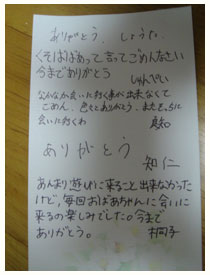 ありがとう、しょうた。
くそばばあって言ってごめんなさい
今までありがとう
しゅんぺい
なかなか会いに行く事が出来なくて
ごめん、色々とありがとう。またそっちに
会いに行くわ
真知
ありがとう
知仁
あんまり遊びに来ること出来なかった
けど、毎回おばあちゃんに会いに
来るの楽しみでした。今まで
ありがとう。
桐子